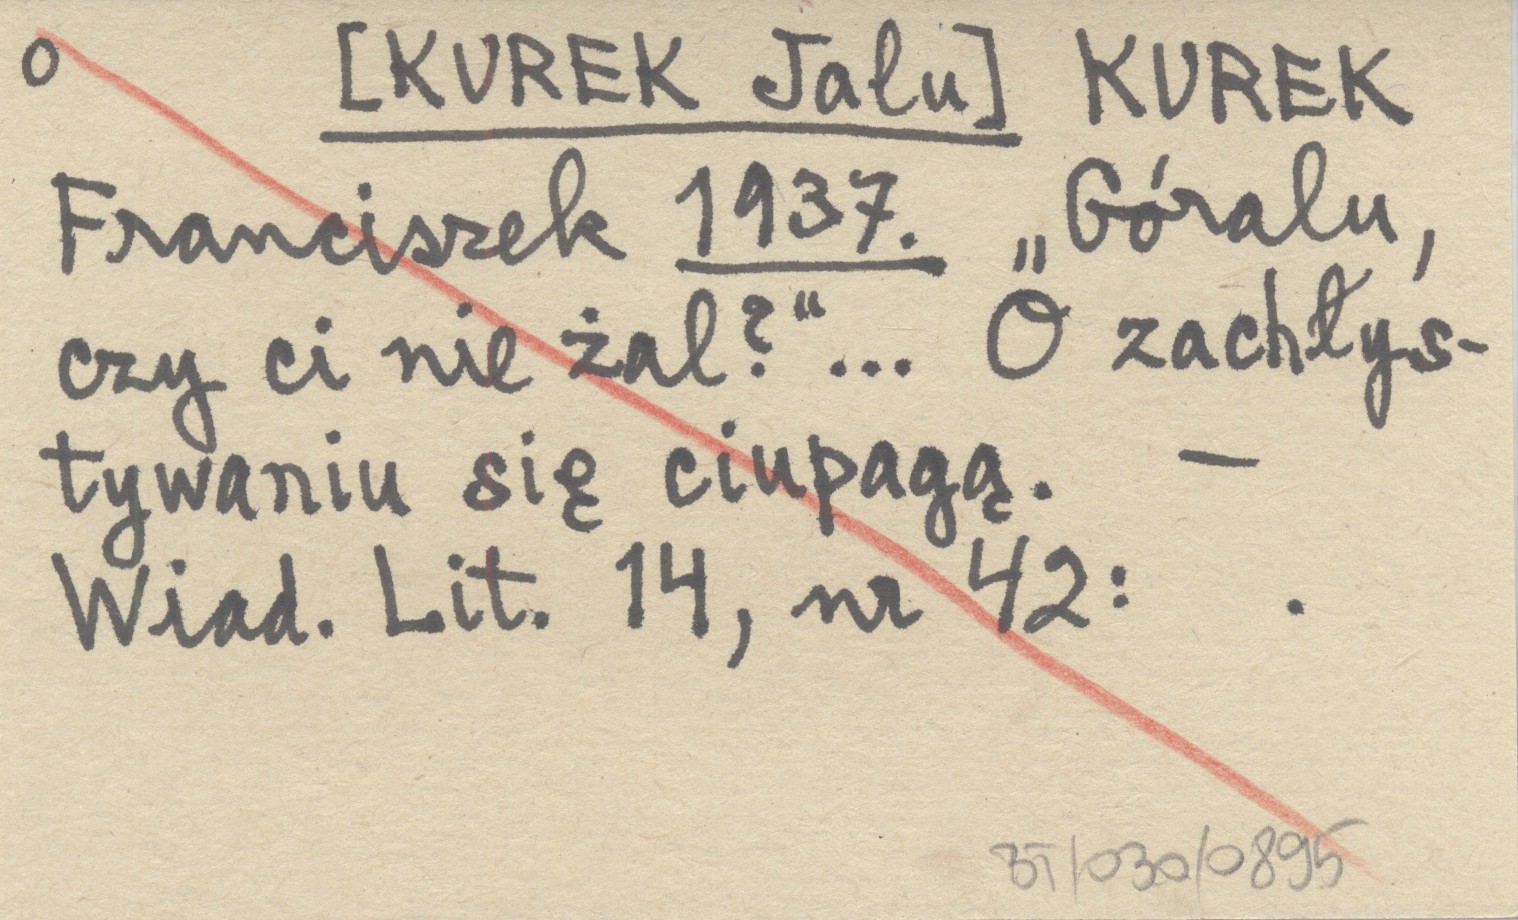 o [KUREK Jalu] KUREK
Franciszek 1937. „Góralu,
czy ci nie żal?“... O zachłys-
tywaniu się ciupagą. —
Wiad. Lit. 14, nr 42: .
BT/030/0895